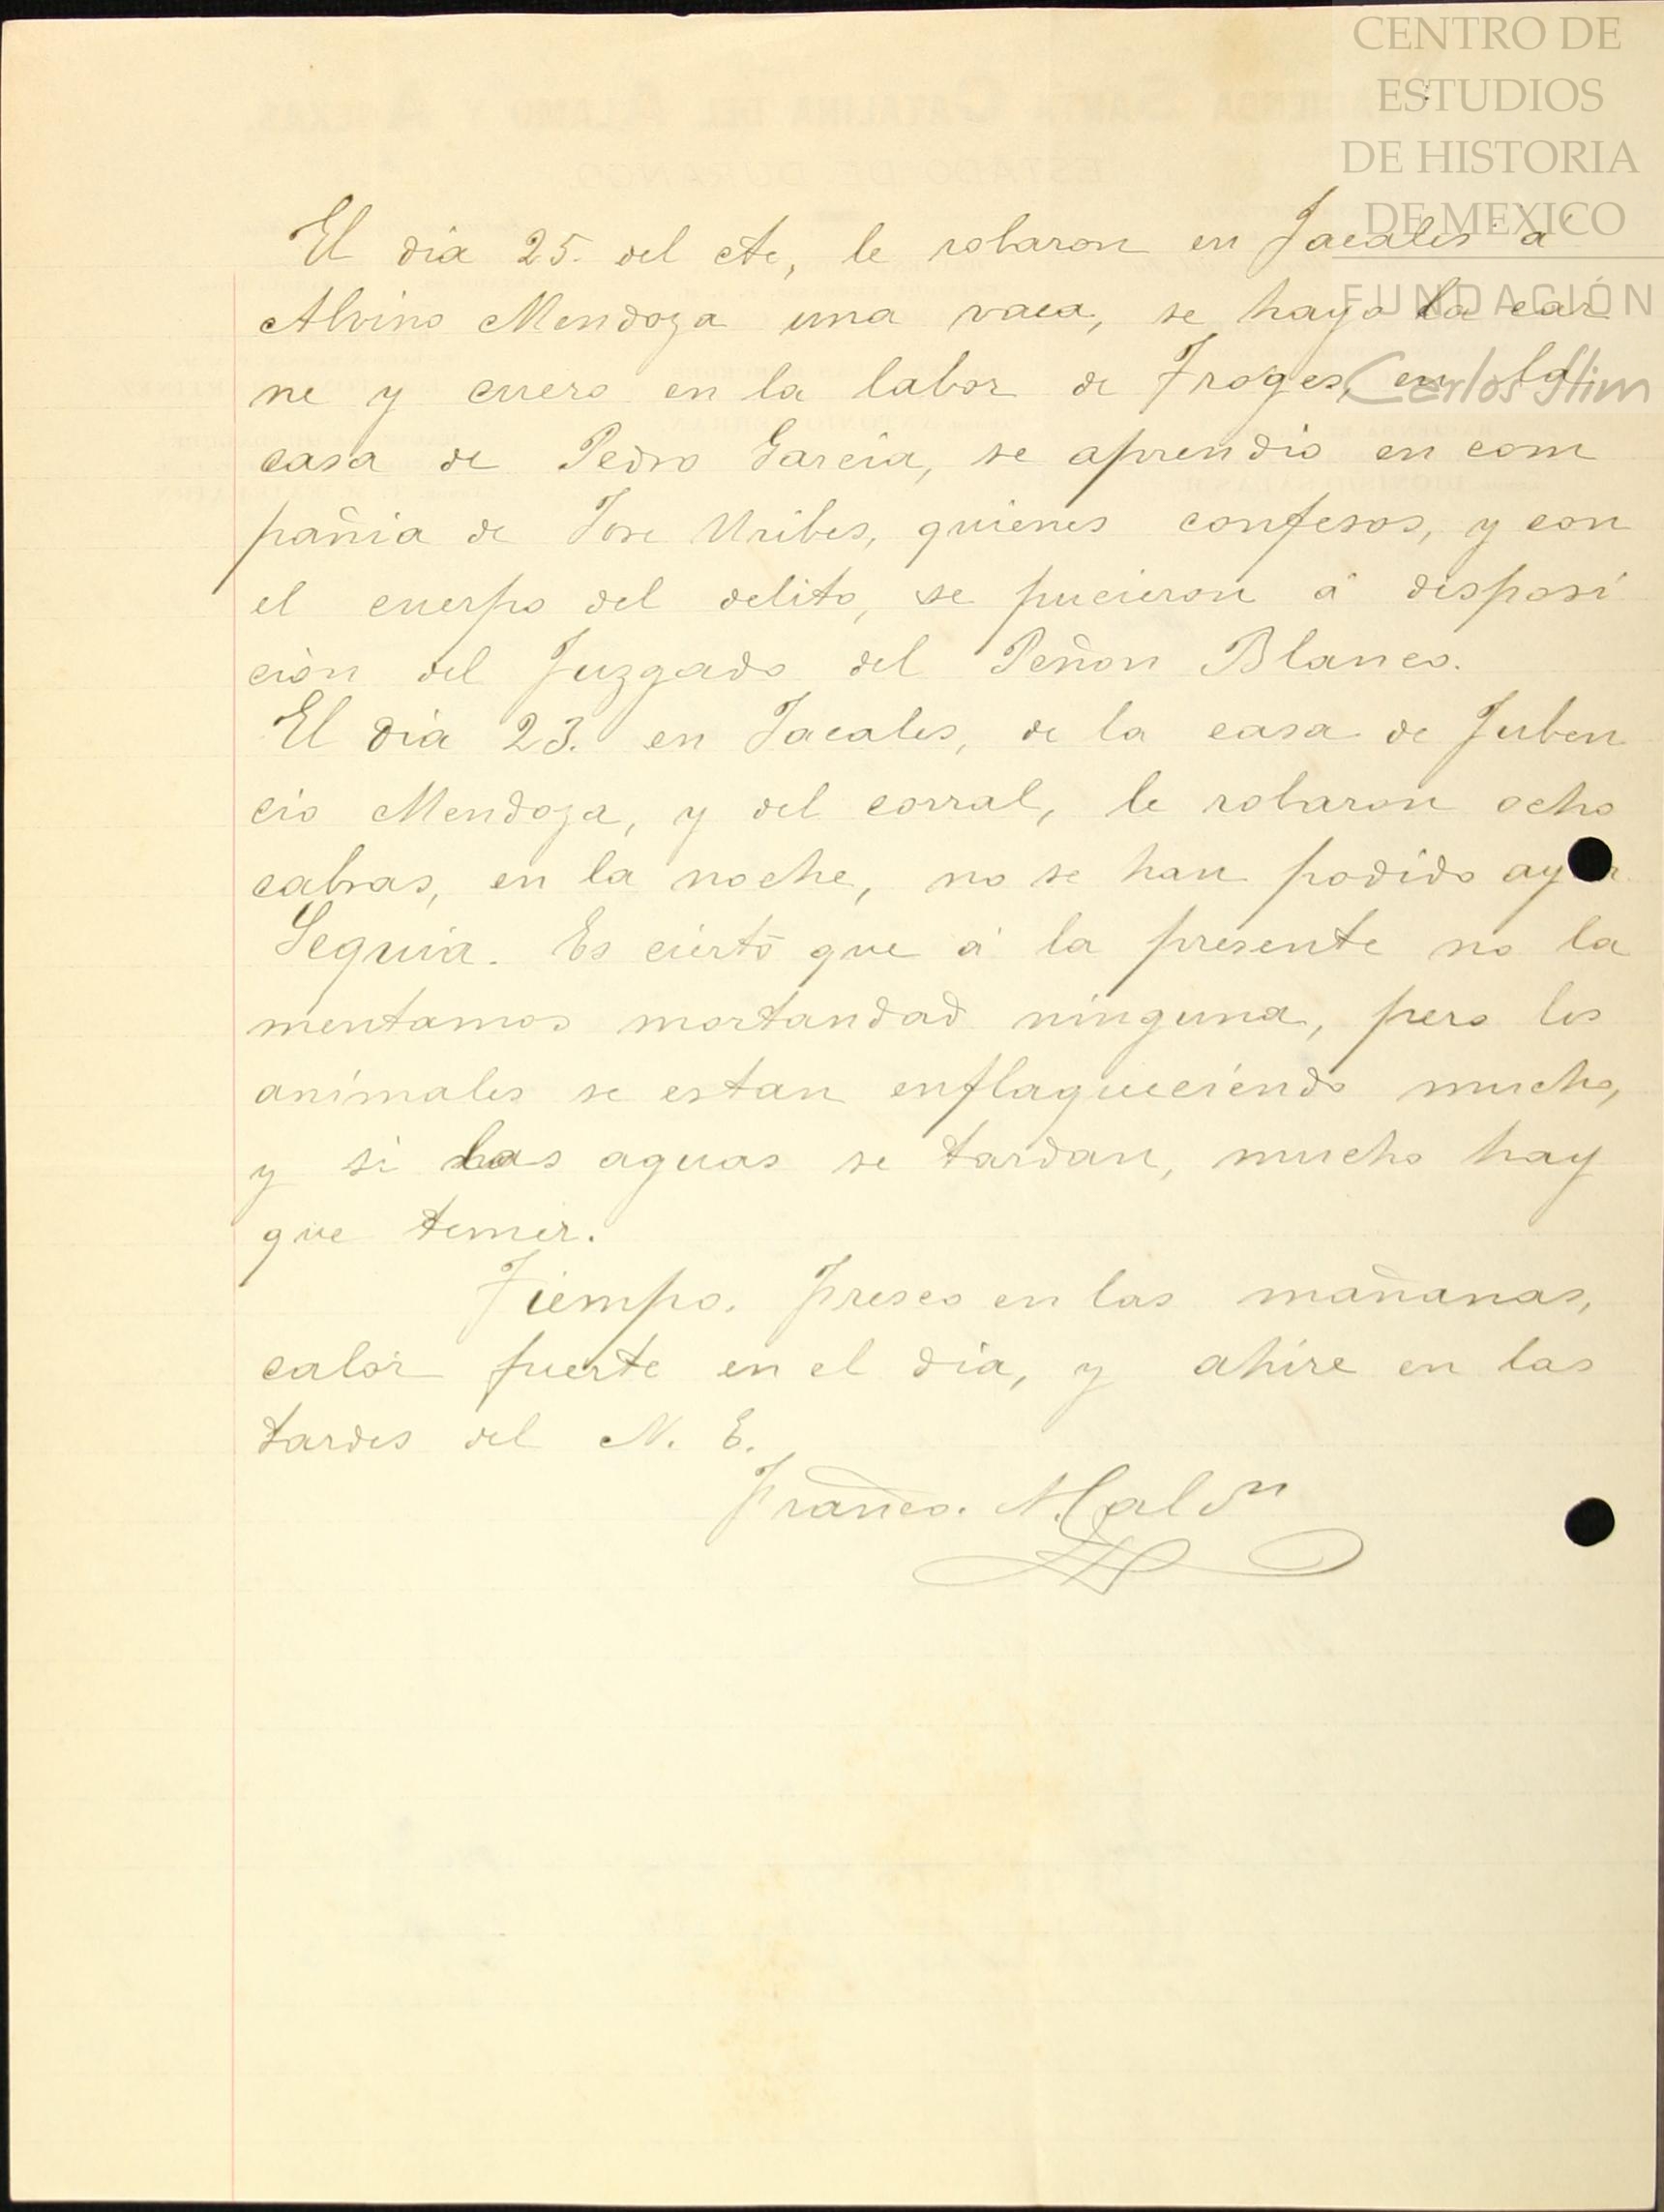 CENTRO DE
ESTUDIOS
DE HISTORIA
DE MEXICO
FUNDACIÓN
Carlos Slim
El dia 25. del cte, le robaron en Jacales á
Alvino Mendoza una vaca, se hayo la car
ne y cuero en la labor de Froges, en la
casa de Pedro Garcia, se aprendio en com
pañia de Jose Uribes, quienes confesos, y con
el cuerpo del delito, se pucieron á disposi
ción del Juzgado del Peñon Blanco.
El dia 23. en Jacales, de la casa de Juben
cio Mendoza, y del corral, le robaron ocho
cabras, en la noche, no se han podido
Sequia. Es cierto que á la presente no la
mentamos mortandad ninguna, pero los
animales se estan enflaqueciendo mucho,
y si las aguas se tardan, mucho hay
que temer.
Tiempo. Fresco en las mañanas,
calor fuerte en el dia, y ahire en las
tardes del N. E.
Franco.